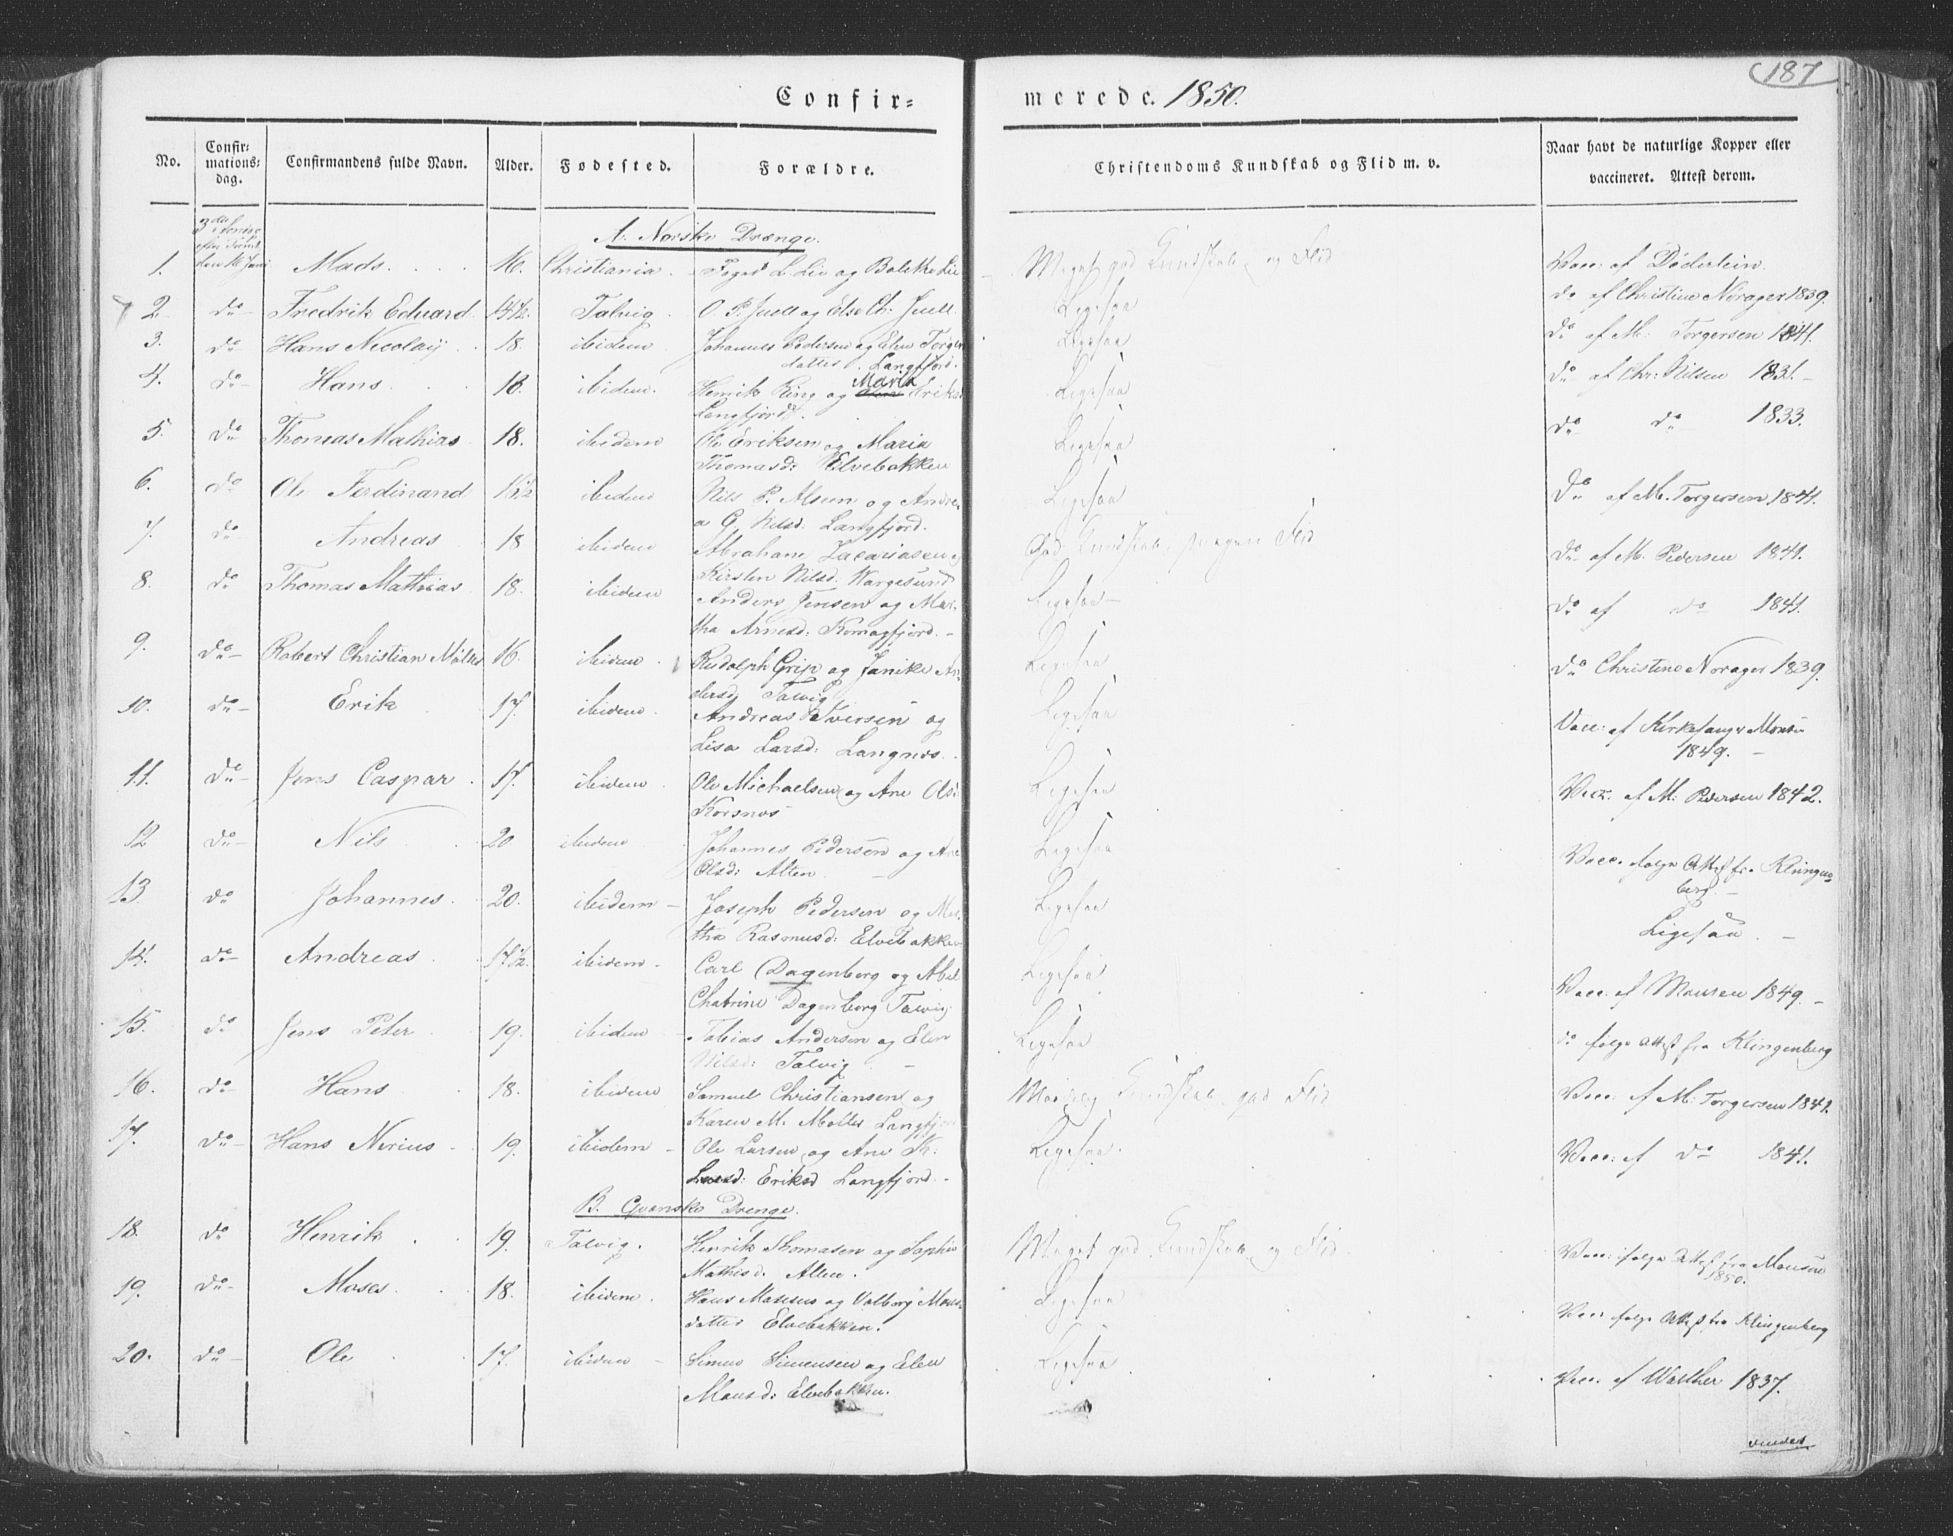 187
Confir-
merede. 1850.
No.
Confir-
mations-
dag.
Confirmandens fulde Navn.
Alder.
Fødested.
Forældre.
Christendoms Kundskab og Flid m. v.
Naar havt de naturlige Kopper eller
vaccineret. Attest derom.
A. Norske Drænge.
1. Mads. 16. Christiania. Foged L. Lie og Bolette Lie Meget god Kundskab og Flid Vacc: af Döderlein.
2. do Fredrik Edvard 14½. Talvig. O. P. Juell og Else Ch: Juell. Ligesaa do af Christine Norager 1839.
3. do Hans Nicolaij 18 ibidem Johannes Pedersen og Elen Torger Ligesaa do af M: Torgersen 1841.
datter. Langfjord.
4. do Hans. 18. ibidem. Henrik Ring og Maria Eriksd Ligesaa do af Chr: Nilsen 1831.
Langfjord.
5. do Thomas Mathias 18. ibidem Ole Eriksen og Maria Ligesaa do do 1833.
Thomasd: Elvebakken
6. do Ole Ferdinand 16½ ibidem Nils P. Alsen og Andre Ligesaa do af M. Torgersen 1841.
a G. Nilsd. Langfjord.
7. do Andreas 18 ibidem Abraham Zacariasen og God Kundskab, megen Flid do af M. Pedersen 1841.
Kirsten Nilsd. Wargesund
8. do Thomas Mathias 18. ibidem Anders Jensen og Mar- Ligesaa do af do 1841.
tha Arnesd: Komagfjord.
9. do Robert Christian Møller 16. ibidem. Rudolph Grip og Janike An- Ligesaa do Christine Norager 1839.
dersd. Talvig
10. do Erik 17. ibidem. Andreas Iversen og Ligesaa Vacc: af Kirkesanger Monsen
1849.
Lisa Larsd: Langnes.
11. do Jens Caspar. 17. ibidem Ole Michaelsen og Ane Ols: Ligesaa Vacc. af M: Pedersen 1842.
Korsnes
12 do Nils 20 ibidem Johannes Pedersen og Ane Ligesaa Vacc. følge Attest fra Klingen-
berg.
Olsd: Alten.
13. do Johannes. 20. ibidem Joseph Pedersen og Mar- Ligesaa Ligesaa.
tha Rasmusd: Elvebakken
14. do Andreas 17½. ibidem Carl Dagenberg og Abel Ligesaa Vacc: af Monsen 1849.
Chatrine Dagenborg Talvig.
15. do Jens Peter 19. ibidem Tobias Andersen og Elen Ligesaa do følge Attest fra Klingenberg
Nilsd: Talvig
16. do Hans 18. ibidem Samuel Christiansen og Kundskab, god Flid Vacc: af M: Torgersen 1841.
Karen M. Møller Langfj
17. do Hans Nerius 19. ibidem Ole Larsen og Ane K: Ligesaa. Vacc: af do 1841.
Eriksd Langfjord.
B. Qvænske Drenge.
18. do Henrik 19. Talvig. Henrik Thomasen og Sophie Meget god Kundskab og Flid Vacc: ifølge Attest fra Monsen
1850.
Mathisd. Alten.
19. do Moses 18. ibidem. Hans Mosesen og Valborg Mons- Ligesaa Vacc følge Attest fra Klingenberg
datter Elvebakken.
20. do Ole 17. ibidem Simon Simensen og Elen Ligesaa Vacc. af Walther 1837.
Monsd: Elvebakken.